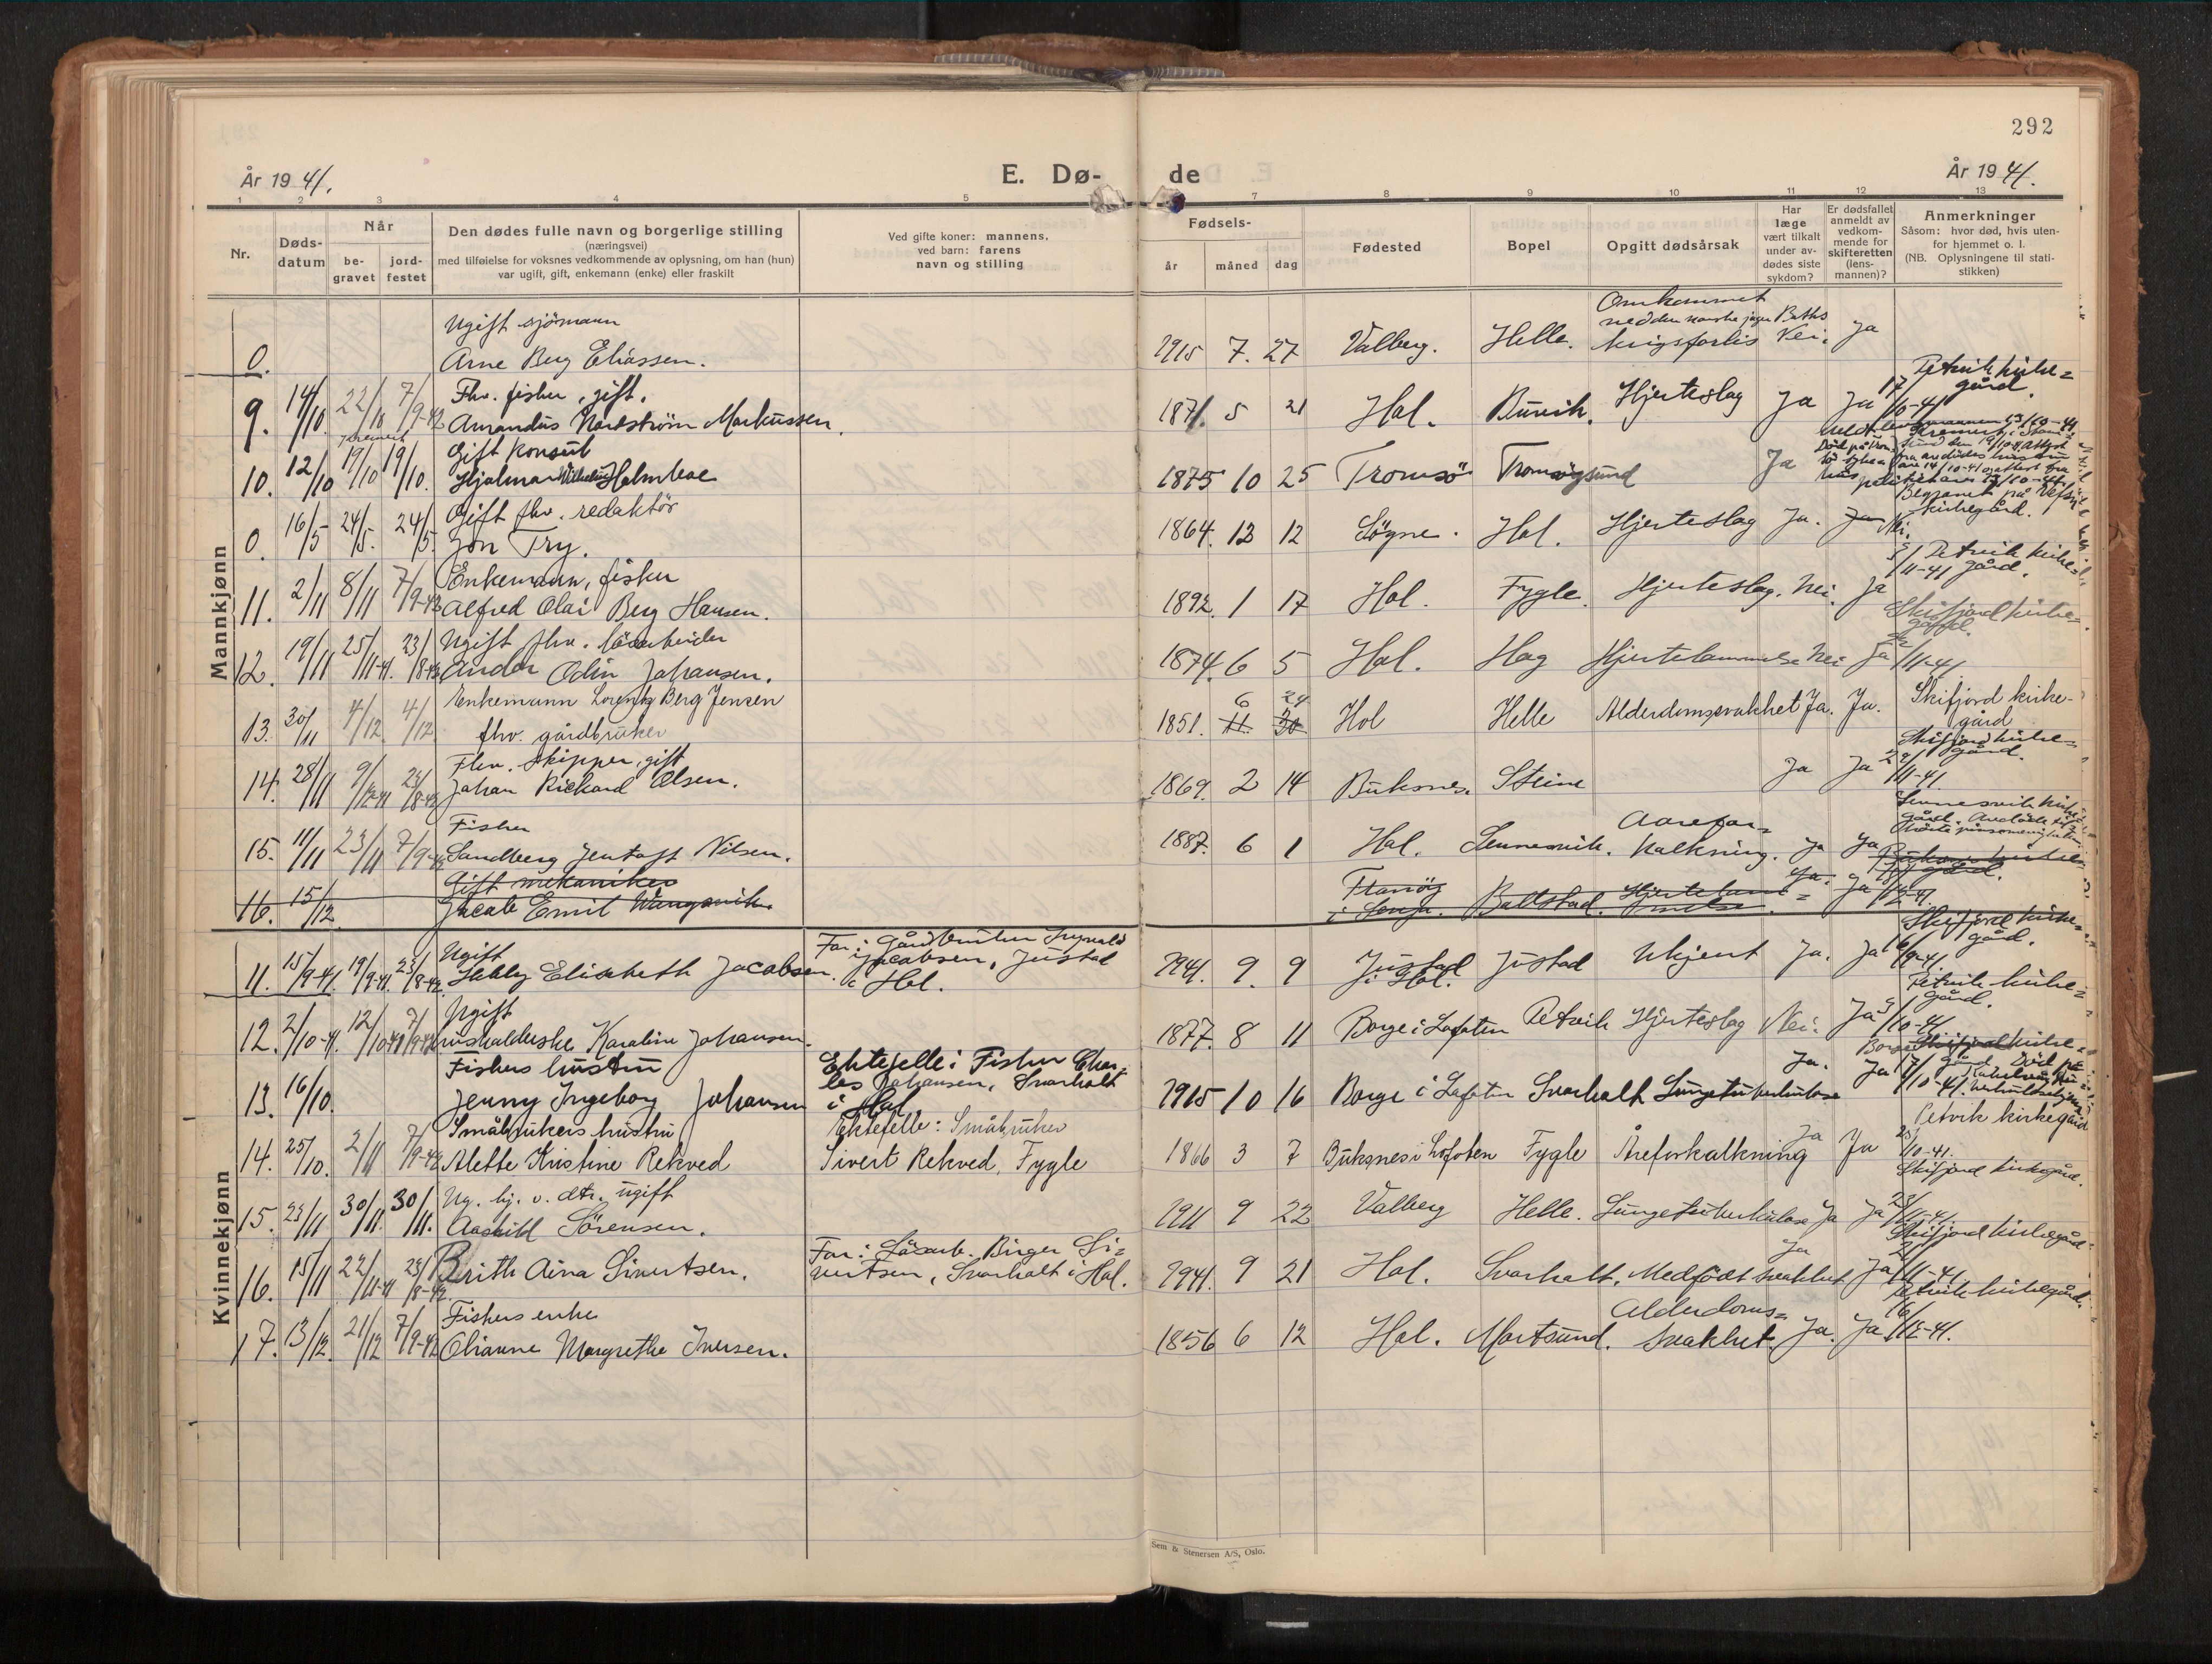 292
År 1941.
E. Dø-
de
År 1941.
1 2 3 4 5 7 8 9 10 11 12 13
Nr.
Døds-
datum
Når
be-
gravet
jord-
festet
Den dødes fulle navn og borgerlige stilling
(næringsvei)
med tilføielse for voksnes vedkommende av oplysning, om han (hun)
var ugift, gift, enkemann (enke) eller fraskilt
Ved gifte koner: mannens,
ved barn: farens
navn og stilling
Fødsels-
år måned dag
Fødested
Bopel
Opgitt dødsårsak
Har
læge
vært tilkalt
under av-
dødes siste
sykdom?
Er dødsfallet
anmeldt av
vedkom-
mende for
skifteretten
(lens-
mannen)?
Anmerkninger
Såsom: hvor død, hvis uten-
for hjemmet o. l.
(NB. Oplysningene til stati-
stikken)
Mannkjønn
Ugift sjømann
Omkommet
0. Arne Berg Eliassen. 1915 7. 27 Valberg. Helle. krigsforlis Nei. Ja
Fhv. fisker, gift.
Petvik kirke=
gård.
9. 14/10. 22/10 7/9-42 Amandus Nordstrøm Markussen. 1871. 5 21 Hol. Buvik. Hjerteslag Ja Ja 17/10-41
Gift konsul
10. 12/10 19/10 19/10. Hjalmar Wilhelm Holmboe 1875 10 25 Tromsö Tromsöysund Ja
Begravet på
kirkegård.
Gift fhv. redaktör
0. 16/5 24/5. 24/5. Jon Try. 1864. 12 12 Sögne. Hol. Hjerteslag Ja. Ja Nei.
Enkemann, fisker
Petvik kirke=
gård.
11. 2/11 8/11 7/9-42 Alfred Olai Berg Hansen. 1892. 1 17 Hol. Fygle. Hjerteslag. Nei. Ja 5/11-41
Ugift fhv. lösarbeider
Skifjord kirke=
gård.
12. 19/11 25/11-41. 23/8-42 Andor Odin Johansen. 1874. 6 5 Hol. Hag Hjertelammelse Nei Ja /11-41
Enkemann Lorentz Berg Jensen
6 24
Skifjord kirke-
gård
13. 30/11 4/12. 4/12 fhv. gårdbruker 1851. 11. 30 Hol Helle Alderdomssvakhet Ja. Ja.
Fhv. skipper, gift
Skifjord kirke=
gård.
14. 28/11 9/12-41 23/8-42 Johan Rickard Olsen. 1869. 2 14 Buksnes. Steine Ja Ja 29/11-41.
Fisker
Aarefor=
Sennesvik kirke
gård.
15. 11/11 23/11 7/9-42 Sandberg Jentoft Nilsen. 1887. 6 1 Hol. Sennesvik. kalkning. Ja Ja
Gift mekaniker
16. 15/12. Jacob Emil Wangsvik. i Senja. Ballstad. Hjertelam=melse. Ja. Ja
Kvinnekjønn
Ugift
Far: Gårdbruker
Jacobsen, Justad
i Hol.
Skifjord kirke=
gård.
11. 15/9-41. 19/9-41. 23/8-42. Elisabeth Jacobsen. 1941. 9. 9 Justad i Hol. Justad Ukjent Ja. Ja 16/9-41.
Ugift
Petvik kirke=
gård.
12. 2/10-41. 12/10-41 7/9-42 husholderske Karoline Johansen. 1877. 8 11 Borge i Lofoten Petvik Hjerteslag Nei. Ja 5/10-41
Fiskers hustru
Ektefelle: Fisker Char-
les Johansen, Svarholt
i Hol
13. 16/10. Jenny Ingeborg Johansen 1915 10 16 Borge i Lofoten Svarholt Lungetuberkulose Ja. Ja 17/10-41.
Småbrukers hustru
Ektefelle: Småbruker
Petvik kirkegård
14. 25/10. 2/11 7/9-42 Alette Kristine Rekved Sivert Rekved, Fygle 1866 3 7 Buksnes i Lofoten Fygle Åreforkalkning Ja Ja /10-41.
Ug. hj. v. dtr. ugift
Skifjord kirkegård.
15. 23/11 30/11. 30/11. Aashild Sörensen. 1911 9 22 Valberg Helle. Lungetuberkulose Ja Ja 25/11-41.
Far: Lösarb. Birger Si=
vertsen, Svarholt i Hol.
Skifjord kirkegård
16. 15/11 22/11-41 23/8-42. Brith Aina Sivertsen. 1941. 9 21 Hol. Svarholt. Medfödt svakhet Ja Ja /11-41.
Fiskers enke
Alderdoms=
Petvik kirkegård.
17. 13/12. 21/12 7/9-42 Olianne Margrethe Iversen. 1856 6 12 Hol. Mortsund. svakhet. Ja. Ja 16/12-41.
Sem & Stenersen A/S, Oslo.